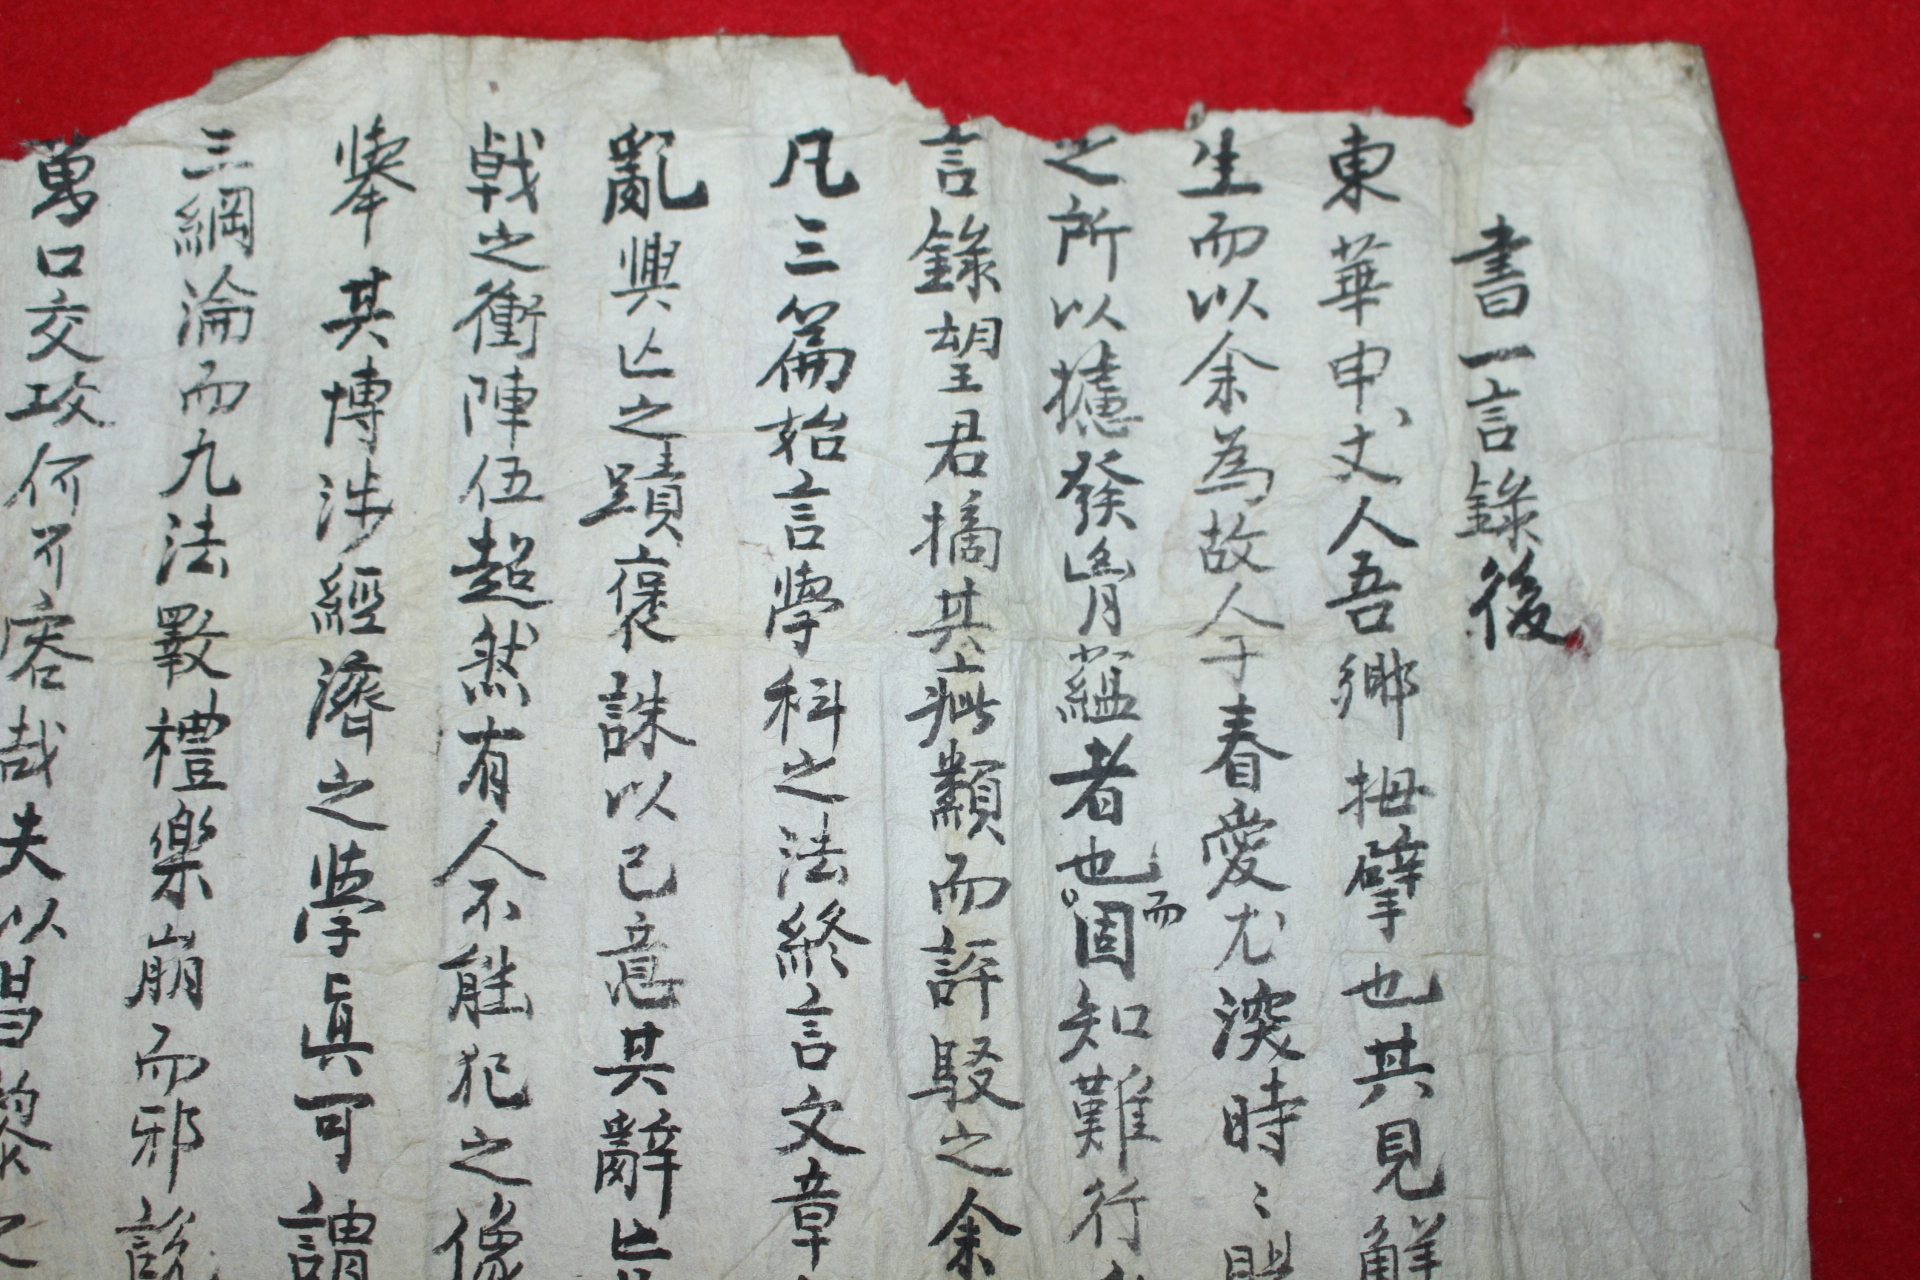 書一言錄後
東華申丈人吾鄉拇擘也其見解
生而以余為故人子春愛尤深時〻
之所以攄發胷蘊者也而固知難行
言錄望君摘其疵纇而評駁之余
凡三篇始言學科之法終言文章
亂興亡之蹟褒誅以己意其辭
戟之衝陣伍超然有人不能犯之像
擧其博涉經濟之學眞可謂
三綱淪而九法斁禮樂崩而邪說
萬口交攻何不容哉夫以昌黎之